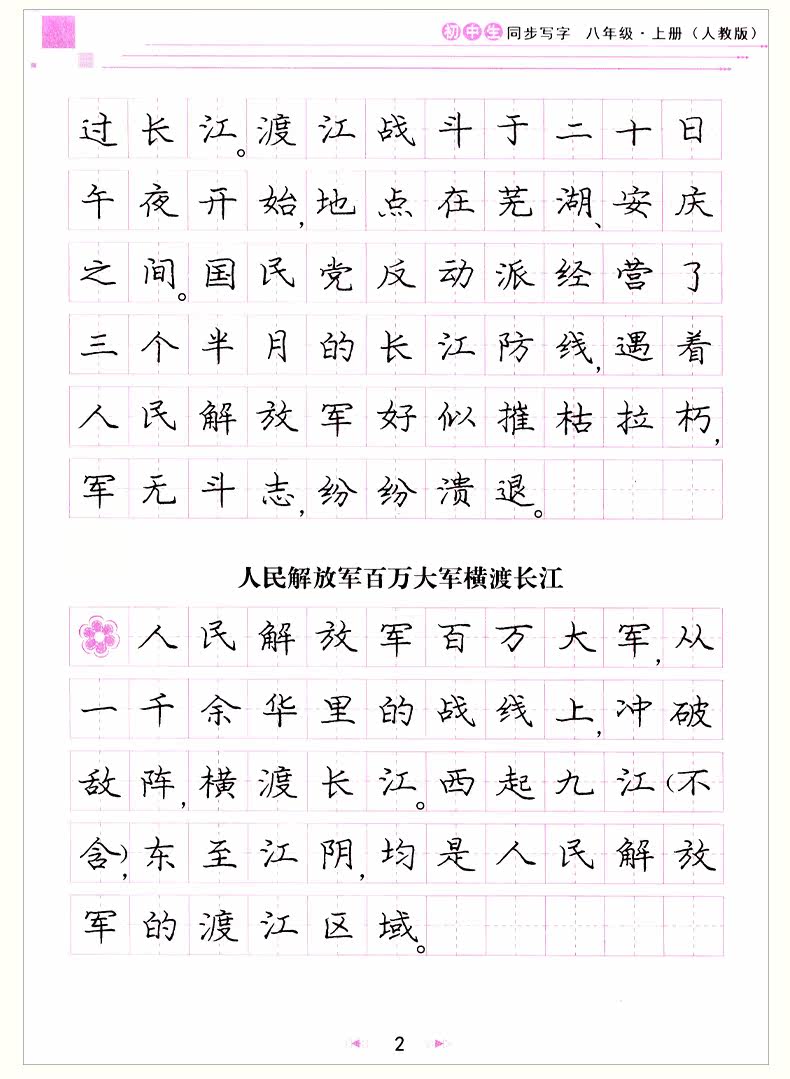 初中生同步写字 八年级·上册（人教版）
过长江。渡江战斗于二十日
午夜开始,地点在芜湖、安庆
之间。国民党反动派经营了
三个半月的长江防线,遇着
人民解放军好似摧枯拉朽,
军无斗志,纷纷溃退。
人民解放军百万大军横渡长江
人民解放军百万大军,从
一千余华里的战线上,冲破
敌阵,横渡长江。西起九江(不
含),东至江阴,均是人民解放
军的渡江区域。
2